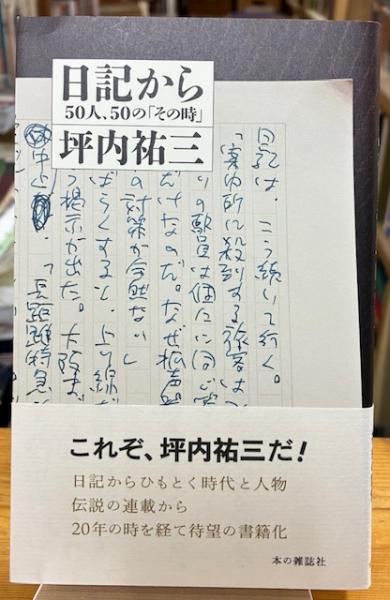 日記から
50人、50の「その時」
坪内祐三
日記は、こう続いて行く。
「案内所に殺到する旅客は
りの駅員は個々に同じ
だけなのだ。なぜ拡声
の対策が全然ない
ばらくすると、上り線
う掲示が出た。大阪ま
中止、「長距離特急
これぞ、坪内祐三だ!
日記からひもとく時代と人物
伝説の連載から
20年の時を経て待望の書籍化
本の雑誌社